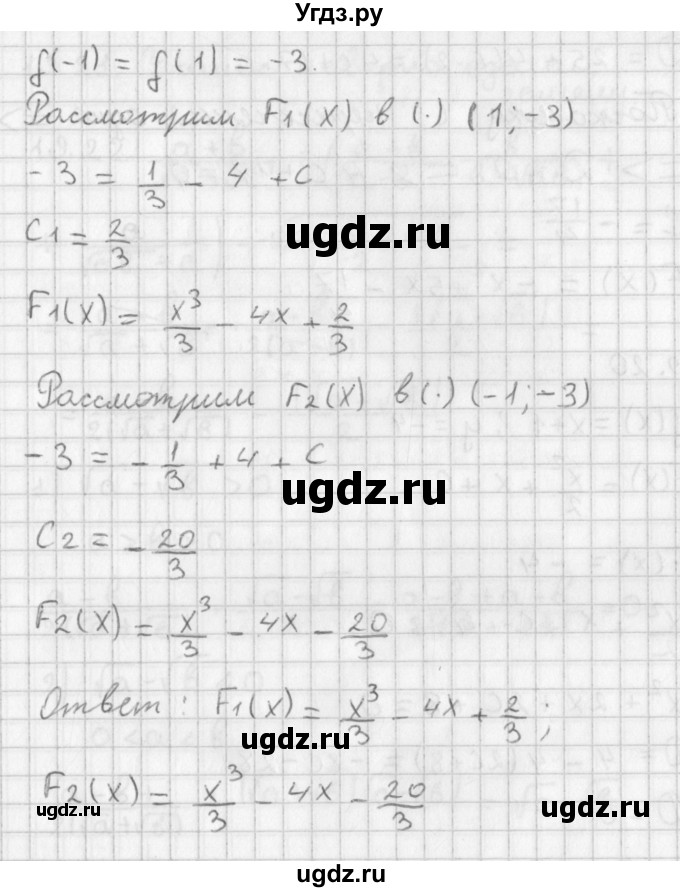 Угдз.ру
f(-1) = f(1) = -3.
Рассмотрим F1(x) в (·) (1; -3)
-3 = 1/3 - 4 + C
ugdz.ru
C1 = 2/3
F1(x) = x³/3 - 4x + 2/3
Рассмотрим F2(x) в (·) (-1; -3)
-3 = -1/3 + 4 + C
ugdz.ru
C2 = -20/3
F2(x) = x³/3 - 4x - 20/3
Ответ: F1(x) = x³/3 - 4x + 2/3;
ugdz.ru
F2(x) = x³/3 - 4x - 20/3
ugdz.ru
ugdz.ru
ugdz.ru